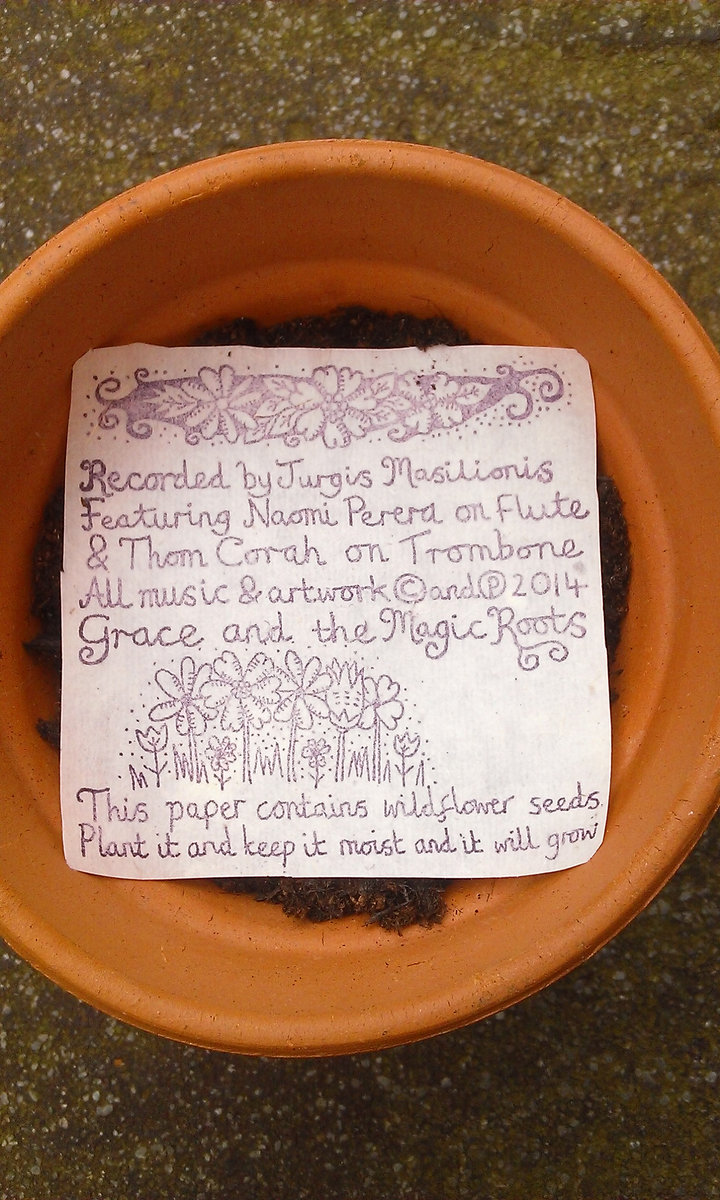 Recorded by Jurgis Masilionis
Featuring Naomi Perera on Flute
& Thom Corah on Trombone
All music & artwork © and ℗ 2014
Grace and the Magic Roots
This paper contains wildflower seeds.
Plant it and keep it moist and it will grow